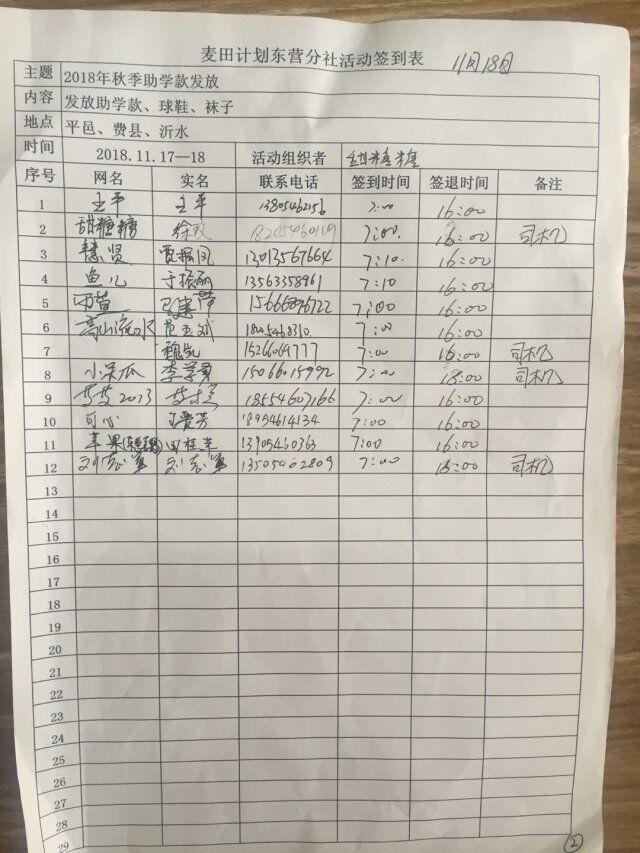 麦田计划东营分社活动签到表 11月18日
主题 2018年秋季助学款发放
内容 发放助学款、球鞋、袜子
地点 平邑、费县、沂水
时间 2018.11.17—18 活动组织者 甜糖糖
序号 网名 实名 联系电话 签到时间 签退时间 备注
1 王平 王平 13805462156 7:00 16:00
2 甜糖糖 徐 7:00 16:00 司机
3 慧贤 贾振凤 13013567664 7:10 16:00
4 鱼儿 于振丽 13563358961 7:10 16:00
5 7:00 16:00
6 高山流水 范玉斌 7:00 16:00
7 魏凯 15266069777 7:00 16:00 司机
8 小呆瓜 李学勇 15066015992 7:00 18:00 司机
9 18654607166 7:00 16:00
10 可心 王爱芳 18954614134 7:00 16:00
11 苹果 田桂兰 13905460363 7:00 16:00
12 刘志军 刘志军 13505462809 7:00 16:00 司机
13
14
15
16
17
18
19
20
21
22
23
24
25
26
27
28
29
2